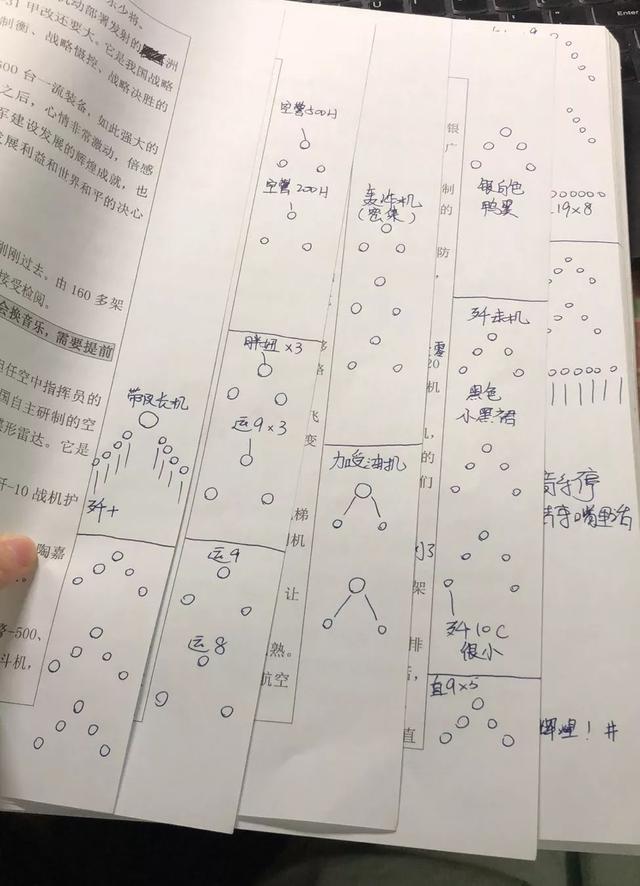 东少将、
机动部署发射的
洲
31甲改还要大。它是我国战略
制衡、战略慑控、战略决胜的
500 台一流装备，如此强大的
之后，心情非常激动，倍感
军建设发展的辉煌成就，也
发展利益和世界和平的决心
刚刚过去。由 160 多架
接受检阅。
会换音乐，需要提前
担任空中指挥员的
国自主研制的空
碟形雷达。它是
歼-10 战机护
陶嘉
警-500、
斗机，
带队长机
歼十
空警500H
空警200H
胖妞×3
运9×3
运9
运8
飞
变
梯
机
让
熟。
航空
轰炸机
(密集)
加受油机
银
广
制
的
防
，
零
20
机
的
们
架
排
直
银白色
鸭翼
歼击机
黑色
小黑裙
歼10C
很小
直9×5
19×8
音乐停
嘴里话
辉煌！#
Enter